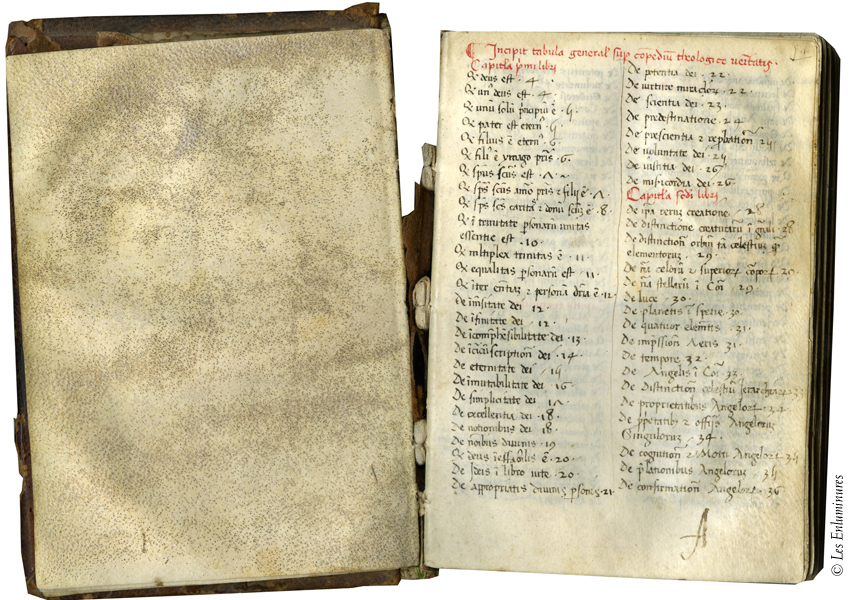 Incipit tabula general' sup' cōpediū theologice veritatis.
Capitl'a p'mi libri
Q deus est . 4 .
Q un' deus est . 4 .
Q unū solū p'ncipiū ē . 5 .
Q pater est etern' 5
Q filius ē etern' 6 .
Q fili' ē ymago pr̄is . 6 .
Q sp̄us sc̄us est . 7 .
Q sp̄s sc̄us amor pr̄is ⁊ filii ē . 7 .
Q sp̄s sc̄s caritas ⁊ donū . 8 .
Q ī trinitate p'sonarū unitas
essentie est . 10 .
Q mltiplex trinitas ē . 11 .
Q equalitas p'sonarū est . 11 .
Q īter . 12 .
De īmēsitate dei 12 .
De īfinitate dei . 12 .
De īcomp'hēsibilitate dei . 13 .
De īcircūscriptiōn dei . 14 .
De eternitate dei . 15
De īmutabilitate dei . 16 .
De simplicitate dei . 17
De excellentia dei . 18 .
De nominibus dei . 18
De noībus divinis . 19 .
Q deus ē . 20 .
De ī libro vite . 20 .
De appropriatis divinis p'sonis . 21 .
De potentia dei . 22 .
De virtute miraclor' . 22 .
De scientia dei . 23 .
De predestinatione . 24
De prescientia ⁊
De voluntate dei . 25
De iustitia dei . 26
De misericordia dei . 26 .
Capitl'a sc̄di libri
De ip̄a rerum creatione . 28
De distinctione creaturarū ī gn̄ali . 28
De distinctiōn orbiū tā celestiuʒ q̄
elementoruʒ . 29 .
De nā celorū ⁊ superior' corpor' . 29
De nā stellarū ī 29 .
De luce . 30 .
De planetis ī specie . 30 .
De quatuor elemētis . 31 .
De imp̄ssiōn Aeris 31 .
De tempore . 32 .
De Angelis ī 33 .
De Distinctiōn celestiū Ierarchiar'
De proprietatibus Angelor' . 34
De p'petatib' ⁊ officio Angeloruʒ
Singuloruʒ . 34 .
De cognitiōn ⁊ Motu Angelor' 35
De p'lationibus Angeloruʒ . 35
De confirmatiōn Angelor' . 36
A
© Les Enluminures